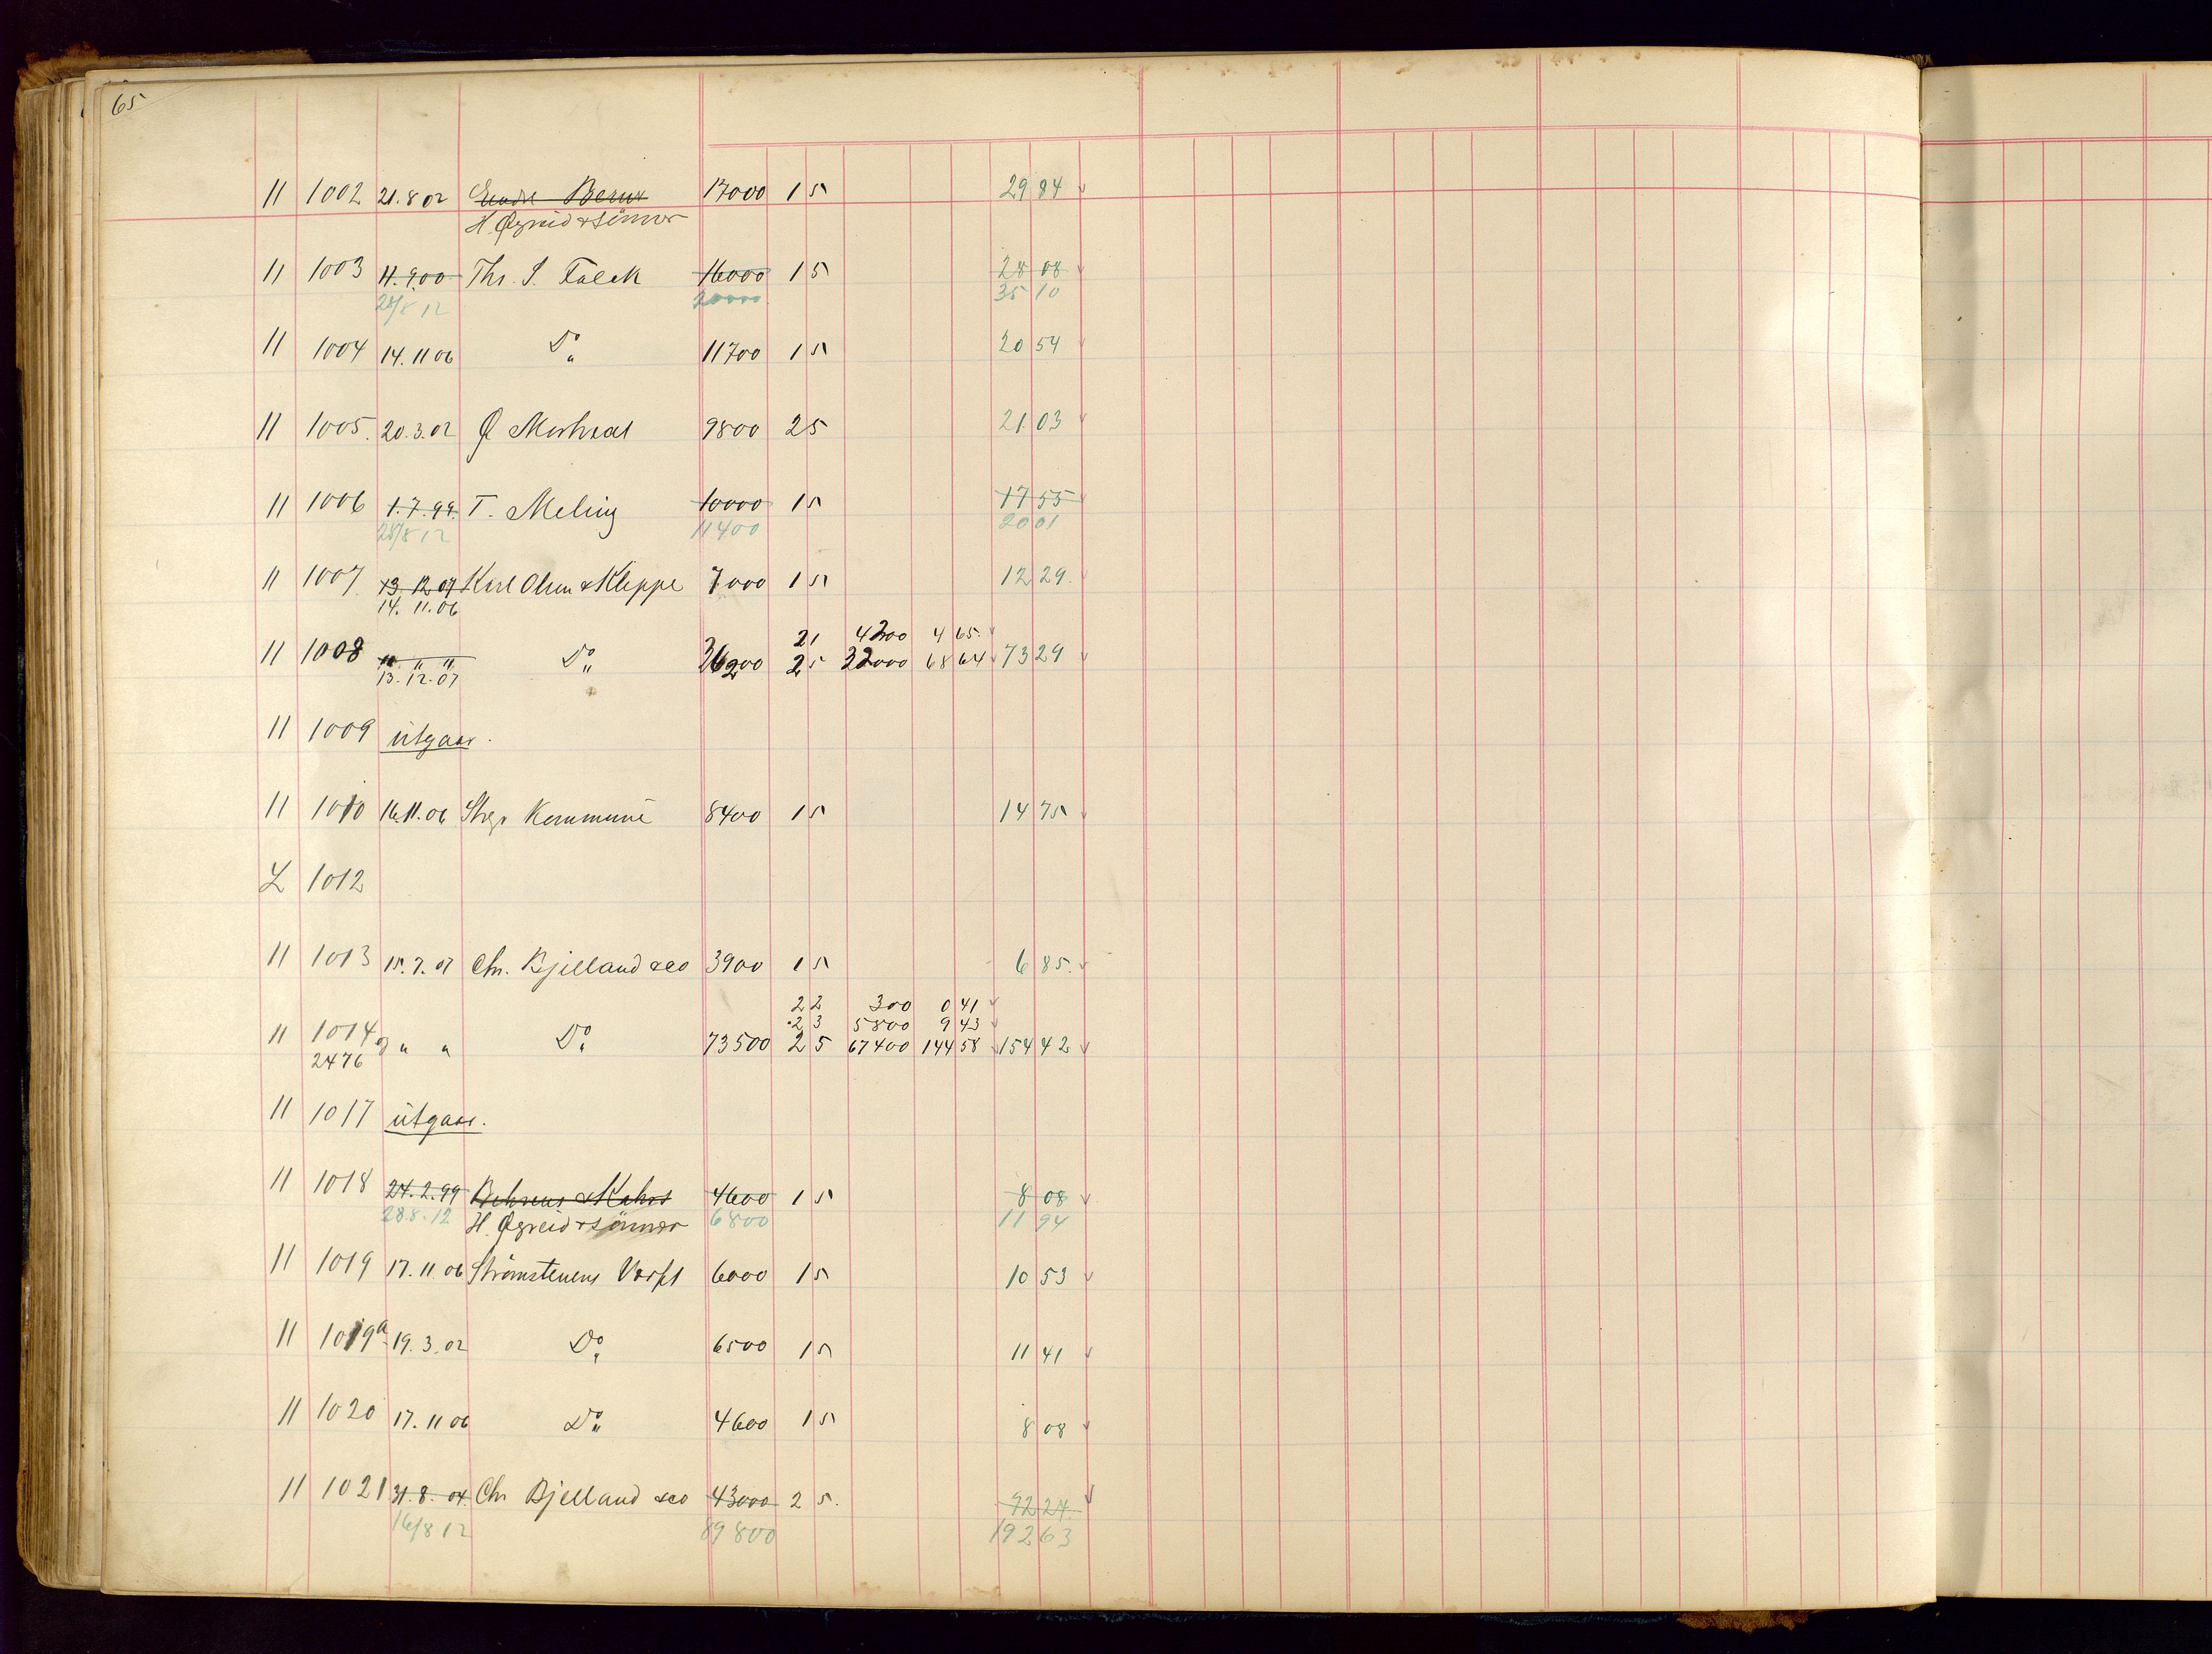 65
11 1002 21.8 02 Endre Berner 17000 1 5 29 84
H. Øgreid & Sönner
11 1003 11.9.00 Thr. S. Falck 16000 1 5 28 08
28/8 12 20000 35 10
11 1004 14.11 06 Do " 11700 1 5 20 54
11 1005. 20.3.02 Ø 9800 2 5 21 03
11 1006 1.7.99. T. Meling 10000 1 5 17 55
28/8 12 11400 20 01
11 1007. 13.12 07 Karl Olsen & Kleppe 7000 1 5 12 29.
14.11.06
21 4200 4 65.
11 1008 " " " Do " 36200 2 5 32000 68 64 73 29
13.12.07
11 1009 utgaar.
11 1010 16.11.06 Stvgr Kommune 8400 1 5 14 75
L 1012
11 1013 15.7.07 Chr. Bjelland & Co 3900 1 5 6 85.
2 2 300 0 41
2 3 5800 9 43
11 1014 " " Do " 73500 2 5 67400 144 58 154 42
2476
11 1017 utgaar.
11 1018 24.2.99 Behrens & Kahrs 4600 1 5 8 08
28.8.12 H. Øgreid & Sönner 6800 11 94
11 1019 17.11.06 Strömstenens Værft 6000 1 5 10 53
11 1019a 19.3.02 Do " 6500 1 5 11 41
11 1020 17.11 06 Do " 4600 1 5 8 08
11 1021 31.8.04. Chr Bjelland & Co 43000 2 5. 92 24.
16/8 12 89800 192 63